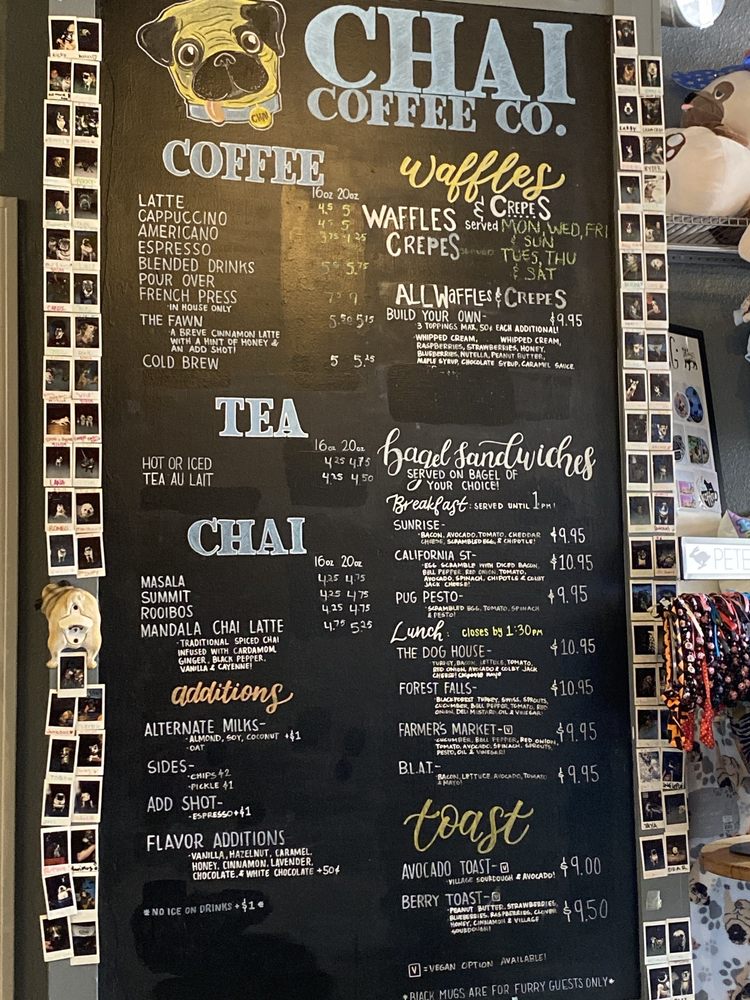 CHAI
COFFEE CO.
COFFEE
16oz 20oz
LATTE 4.5 5
CAPPUCCINO 4.5 5
AMERICANO 3.75 4.25
ESPRESSO
BLENDED DRINKS 5.75
POUR OVER
FRENCH PRESS
·IN HOUSE ONLY
THE FAWN
·A BREVE CINNAMON LATTE
WITH A HINT OF HONEY &
AN ADD SHOT!
COLD BREW 5 5.25
TEA
16oz 20oz
HOT OR ICED 4.25 4.75
TEA AU LAIT 4.25 4.50
CHAI
16oz 20oz
MASALA 4.25 4.75
SUMMIT 4.25 4.75
ROOIBOS 4.25 4.75
MANDALA CHAI LATTE 4.75 5.25
·TRADITIONAL SPICED CHAI
INFUSED WITH CARDAMOM,
GINGER, BLACK PEPPER,
VANILLA & CAYENNE!
additions
ALTERNATE MILKS-
·ALMOND, SOY, COCONUT +$1
·OAT
SIDES-
·CHIPS $2
·PICKLE $1
ADD SHOT-
·ESPRESSO +$1
FLAVOR ADDITIONS
·VANILLA, HAZELNUT, CARAMEL,
HONEY, CINNAMON, LAVENDER,
CHOCOLATE, & WHITE CHOCOLATE +50¢
*NO ICE ON DRINKS +$1*
waffles
& CREPES
WAFFLES served MON, WED, FRI
& SUN
CREPES TUES, THU
& SAT
ALL WAFFLES & CREPES
BUILD YOUR OWN- $9.95
3 TOPPINGS MAX, 50¢ EACH ADDITIONAL!
·WHIPPED CREAM, WHIPPED CREAM,
RASPBERRIES, STRAWBERRIES, HONEY,
BLUEBERRIES, NUTELLA, PEANUT BUTTER,
MAPLE SYRUP, CHOCOLATE SYRUP, CARAMEL SAUCE
bagel sandwiches
SERVED ON BAGEL OF
YOUR CHOICE!
Breakfast: SERVED UNTIL 1PM!
SUNRISE- $9.95
·BACON, AVOCADO, TOMATO, CHEDDAR
CHEESE, SCRAMBLED EGG, & CHIPOTLE!
CALIFORNIA ST- $10.95
·EGG SCRAMBLE WITH DICED BACON,
BELL PEPPER, RED ONION, TOMATO,
AVOCADO, SPINACH, CHIPOTLE & COLBY
JACK CHEESE!
PUG PESTO- $9.95
·SCRAMBLED EGG, TOMATO, SPINACH
& PESTO!
Lunch: closes by 1:30PM
THE DOG HOUSE- $10.95
·TURKEY, BACON, LETTUCE, TOMATO,
RED ONION, AVOCADO & COLBY JACK
CHEESE! Chipotle mayo
FOREST FALLS- $10.95
·BLACKFOREST TURKEY, SWISS, SPROUTS,
CUCUMBER, BELL PEPPER, TOMATO, RED
ONION, DELI MUSTARD, OIL & VINEGAR!
FARMER'S MARKET- V $9.95
·CUCUMBER, BELL PEPPER, RED ONION,
TOMATO, AVOCADO, SPINACH, SPROUTS,
PESTO, OIL & VINEGAR!
B.L.A.T.- $9.95
·BACON, LETTUCE, AVOCADO, TOMATO
& MAYO!
toast
AVOCADO TOAST- V $9.00
·VILLAGE SOURDOUGH & AVOCADO!
BERRY TOAST- V $9.50
·PEANUT BUTTER, STRAWBERRIES,
BLUEBERRIES, RASPBERRIES, CLOVER
HONEY, CINNAMON & VILLAGE
SOURDOUGH!
V =VEGAN OPTION AVAILABLE!
*BLACK MUGS ARE FOR FURRY GUESTS ONLY*
PETE